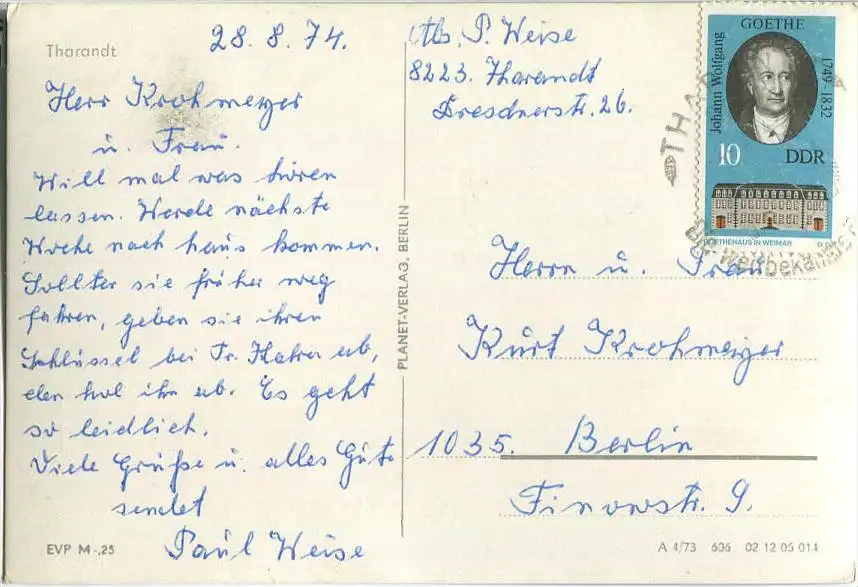 Tharandt
28. 8. 74.
Herr Krohmeyer
u. Frau.
Will mal was hören
lassen. Werde nächste
Woche nach haus kommen.
Sollten sie früher weg
fahren, geben sie ihren
Schlüssel bei Fr. ab,
den hol ihn ab. Es geht
so leidlich.
Viele Grüße u. alles Gute
sendet
Paul Weise
EVP M -,25
PLANET-VERLAG, BERLIN
Abs. P. Weise
8223. Tharandt
Dresdnerstr. 26.
GOETHE
Johann Wolfgang
1749-1832
10 DDR
GOETHEHAUS IN WEIMAR
THAR
Herrn u. Frau
Kurt Krohmeyer
1035. Berlin
Finowstr. 9.
A 4/73 606 02 12 05 014